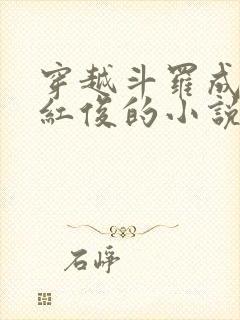 穿越斗羅成
紅俊的小說
石崢